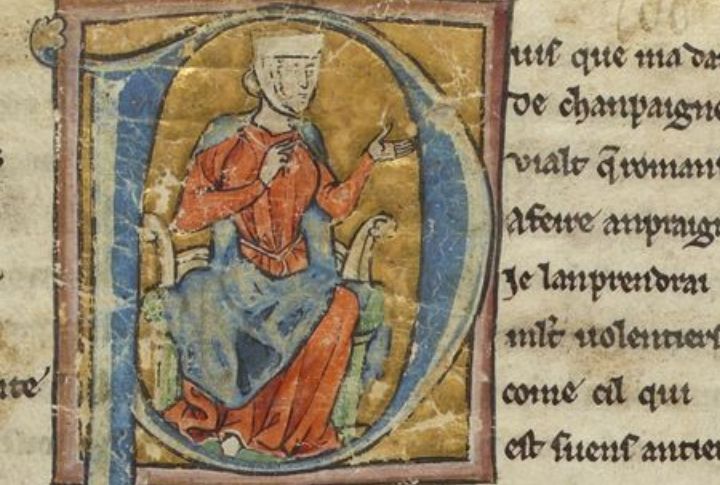 Puis que ma da
De chanpaigne
vialt q̃ romanz
A feire anpraigne
Je lanprendrai
mlt̃ uolentiers
come cil qui
est suens antier